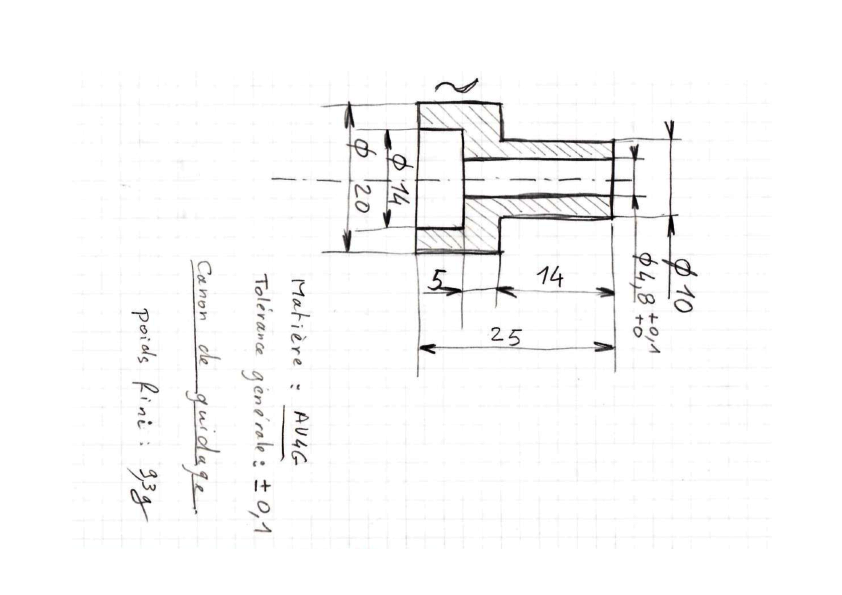 φ 20
φ 14
5
14
25
φ 4,8 +0,1
+0
φ 10
Matière : AU4G
Tolérance générale : ± 0,1
Canon de guidage
poids fini : 9,3g